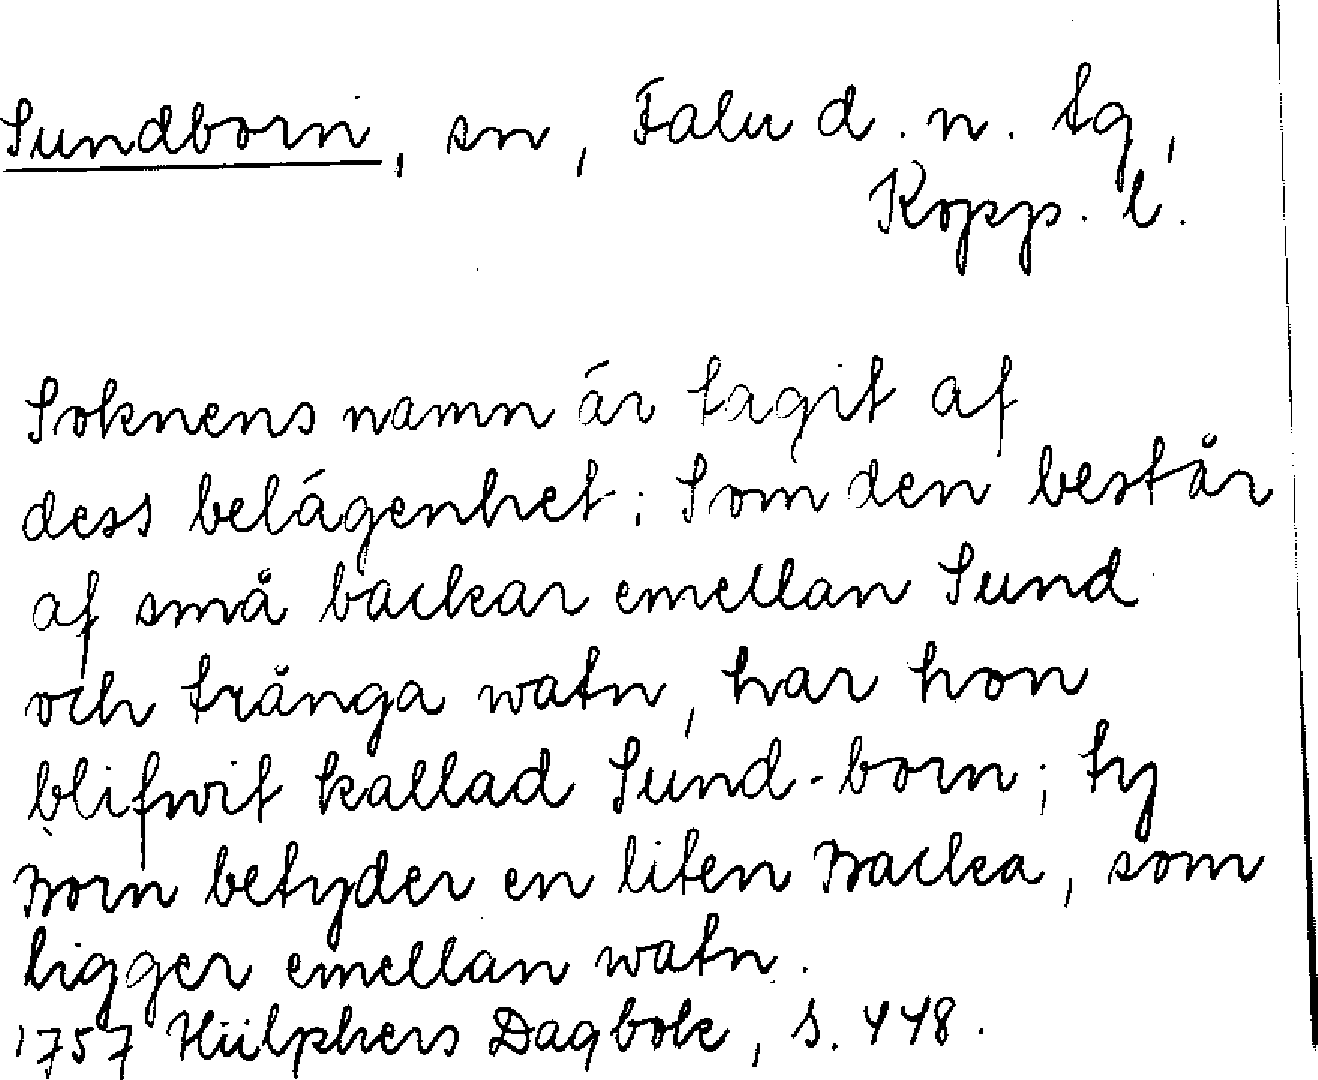 Sundborn, sn, Falu d. n. tg,
Kopp. l.
Soknens namn är tagit af
dess belägenhet: Som den består
af små backar emellan Sund
och trånga watn, har hon
blifwit kallad Sund-born; ty
Born betyder en liten Backa, som
ligger emellan watn.
1757 Hülphers Dagbok, s. 448.